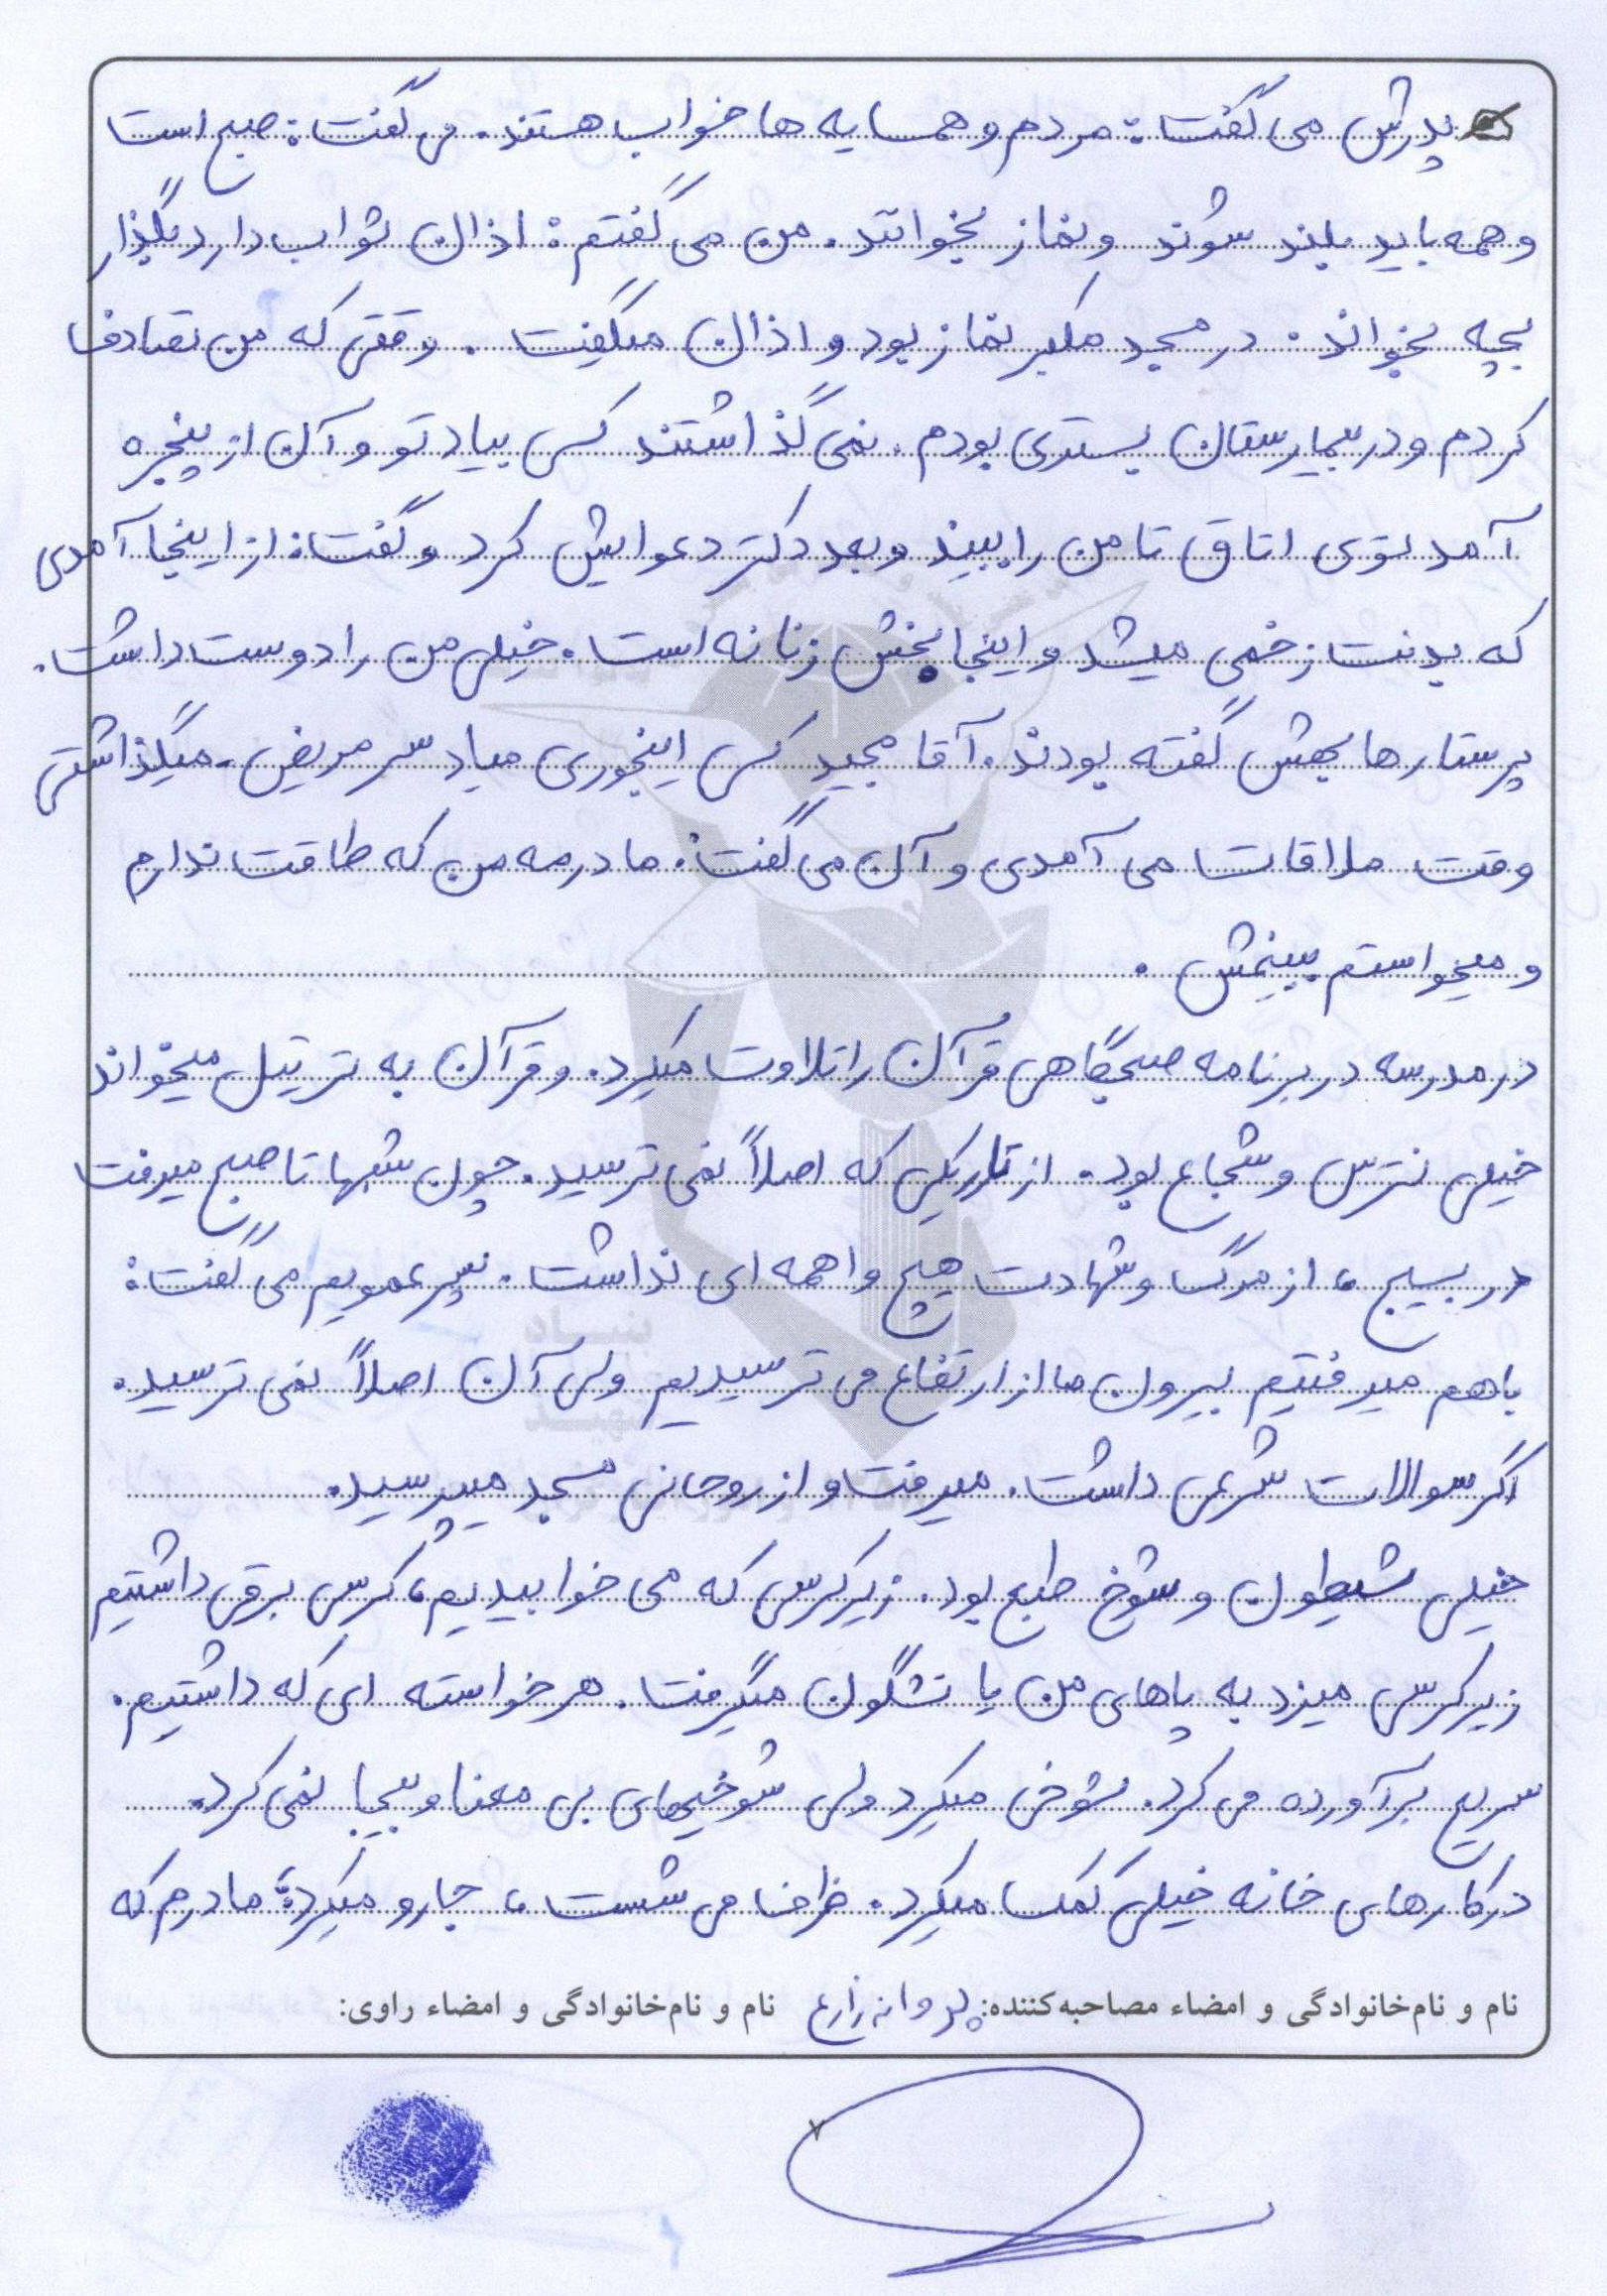 پدرش می گفت: مردم و همسایه ها خواب هستند. می گفت: صبح است
و همه باید بلند شوند و نماز بخوانند. من می گفتم: اذان ثواب دارد بگذار
بچه بخواند. در مسجد مکبر نماز بود و اذان میگفت. وقتی که من تصادف
کردم و در بیمارستان بستری بودم. نمی گذاشتند کسی بیاد تو و آن از پنجره
آمد توی اتاق تا من را ببیند و بعد دکتر دعوایش کرد و گفت: از اینجا آمدی
که بدنت زخمی میشد و اینجا بخش زنانه است. خیلی من را دوست داشت.
پرستارها بهش گفته بودند. آقا مجید کسی اینجوری میاد سر مریض - میگذاشتی
وقت ملاقات می آمدی و آن می گفت: مادرمه من که طاقت ندارم
و میخواستم ببینمش.
در مدرسه در برنامه صبحگاهی قرآن را تلاوت میکرد. و قرآن به ترتیل میخواند
خیلی نترس و شجاع بود. از تاریکی که اصلاً نمی ترسید. چون شبها تا صبح میرفت
در بسیج، از مرگ و شهادت هیچ واهمه ای نداشت. پسر عمویم می گفت:
باهم میرفتیم بیرون ما از ارتفاع می ترسیدیم ولی آن اصلاً نمی ترسید.
اگر سوالات شرعی داشت. میرفت و از روحانی مسجد میپرسید.
خیلی شیطون و شوخ طبع بود. زیر کرسی که می خوابیدیم، کرسی برقی داشتیم
زیر کرسی میزد به پاهای من یا نشگون میگرفت. هر خواسته ای که داشتیم.
سریع برآورده می کرد. شوخی میکرد ولی شوخیهای بی معنا و بیجا نمی کرد.
در کارهای خانه خیلی کمک میکرد. ظرف می شست، جارو میکرد؛ مادرم که
نام و نام‌خانوادگی و امضاء مصاحبه‌کننده: پروانه زارع نام و نام‌خانوادگی و امضاء راوی:
۷